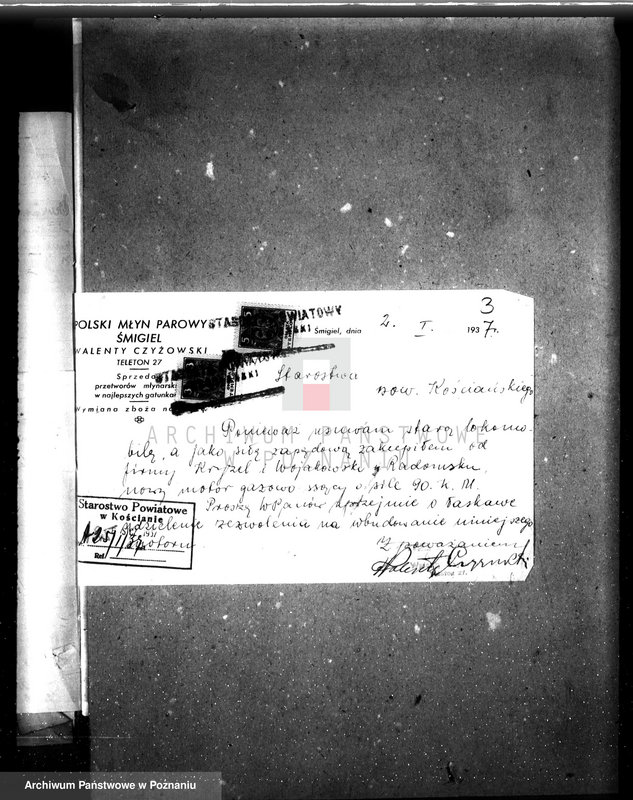 3
POLSKI MŁYN PAROWY
ŚMIGIEL
WALENTY CZYŻOWSKI
TELETON 27
Sprzedaż
przetworów młynarsk
w najlepszych gatunkac
Wymiana zboża na
Śmigiel, dnia 2. I. 1937r.
Starostwa
pow. Kościańskiego
Ponieważ usuwam starą lokomo-
bilę, a jako siłę zapędową zakupiłem od
firmy Kryzel i Wojakowski z Radomsku,
nowy motor gazowo ssący o sile 90. k. M.
Proszę WPanów uprzejmie o łaskawe
udzielenie zezwolenia na wbudowanie niniejszego
motoru.
Z poważaniem
Starostwo Powiatowe
w Kościanie
ARCHIWUM PAŃSTWOWE
W POZNANIU
Archiwum Państwowe w Poznaniu